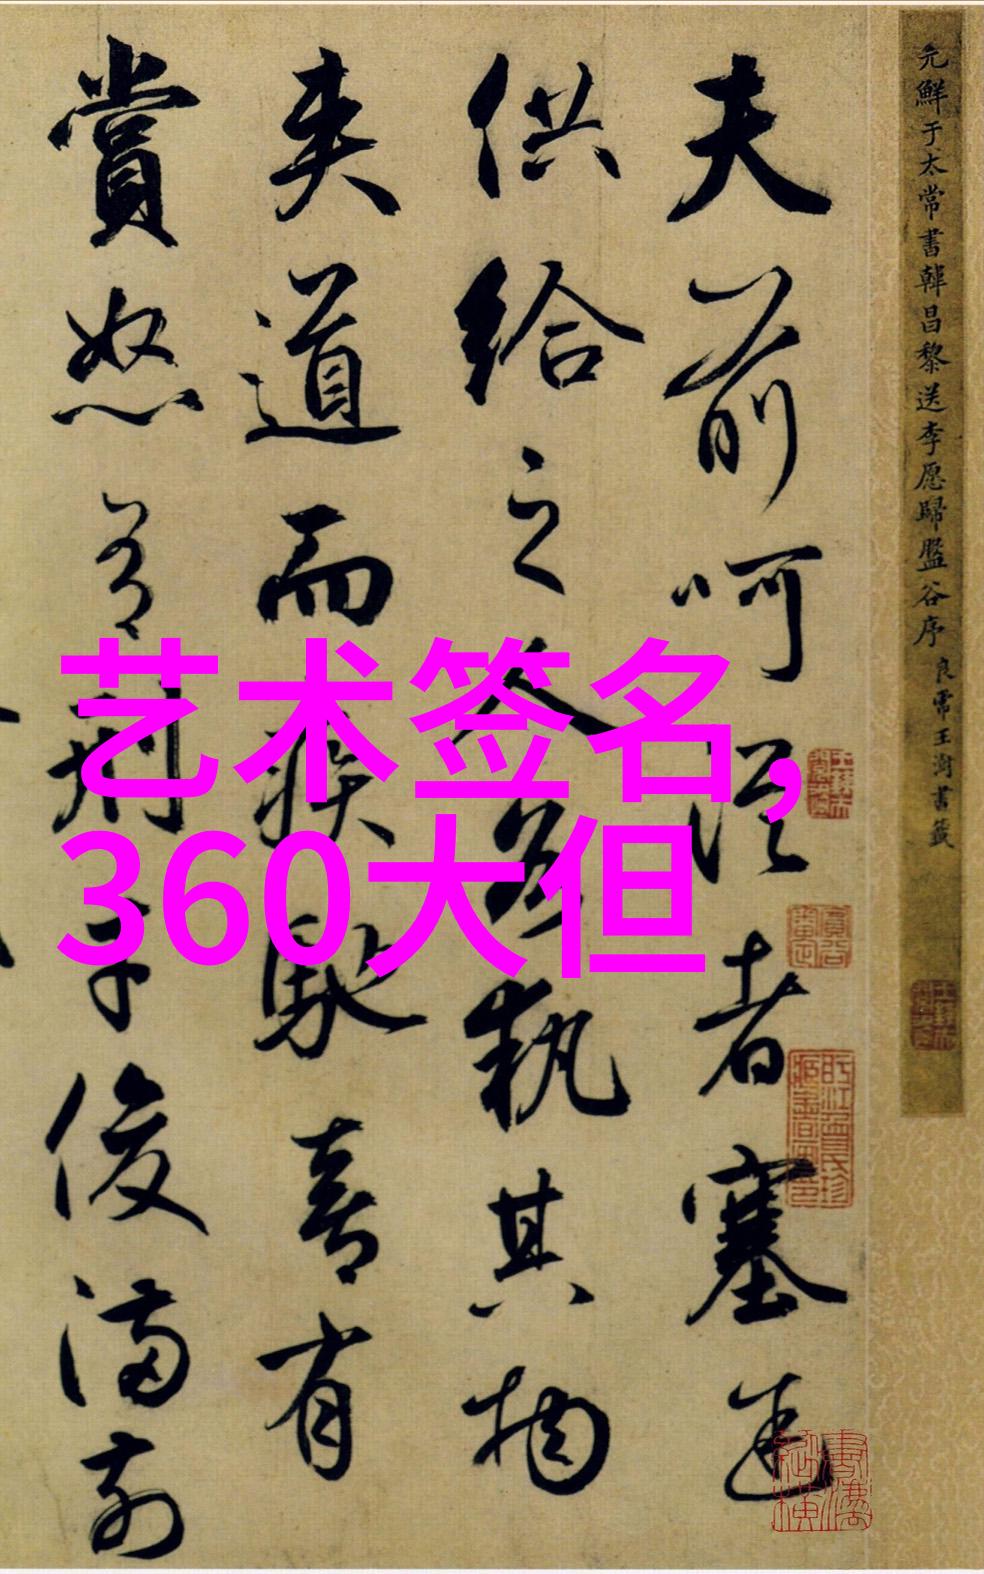 元鮮于太常書韓昌黎送李愿歸盤谷序
良常王澍書籤
夫前呵從者塞途
供給之人各執其物
夾道而疾馳喜有
賞怒有刑才俊滿前
艺术签名,
360大但